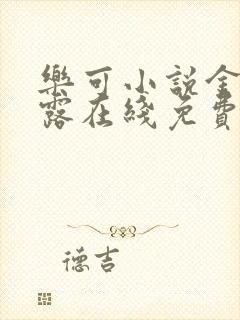 樂可小說金
露在綫免費
德吉